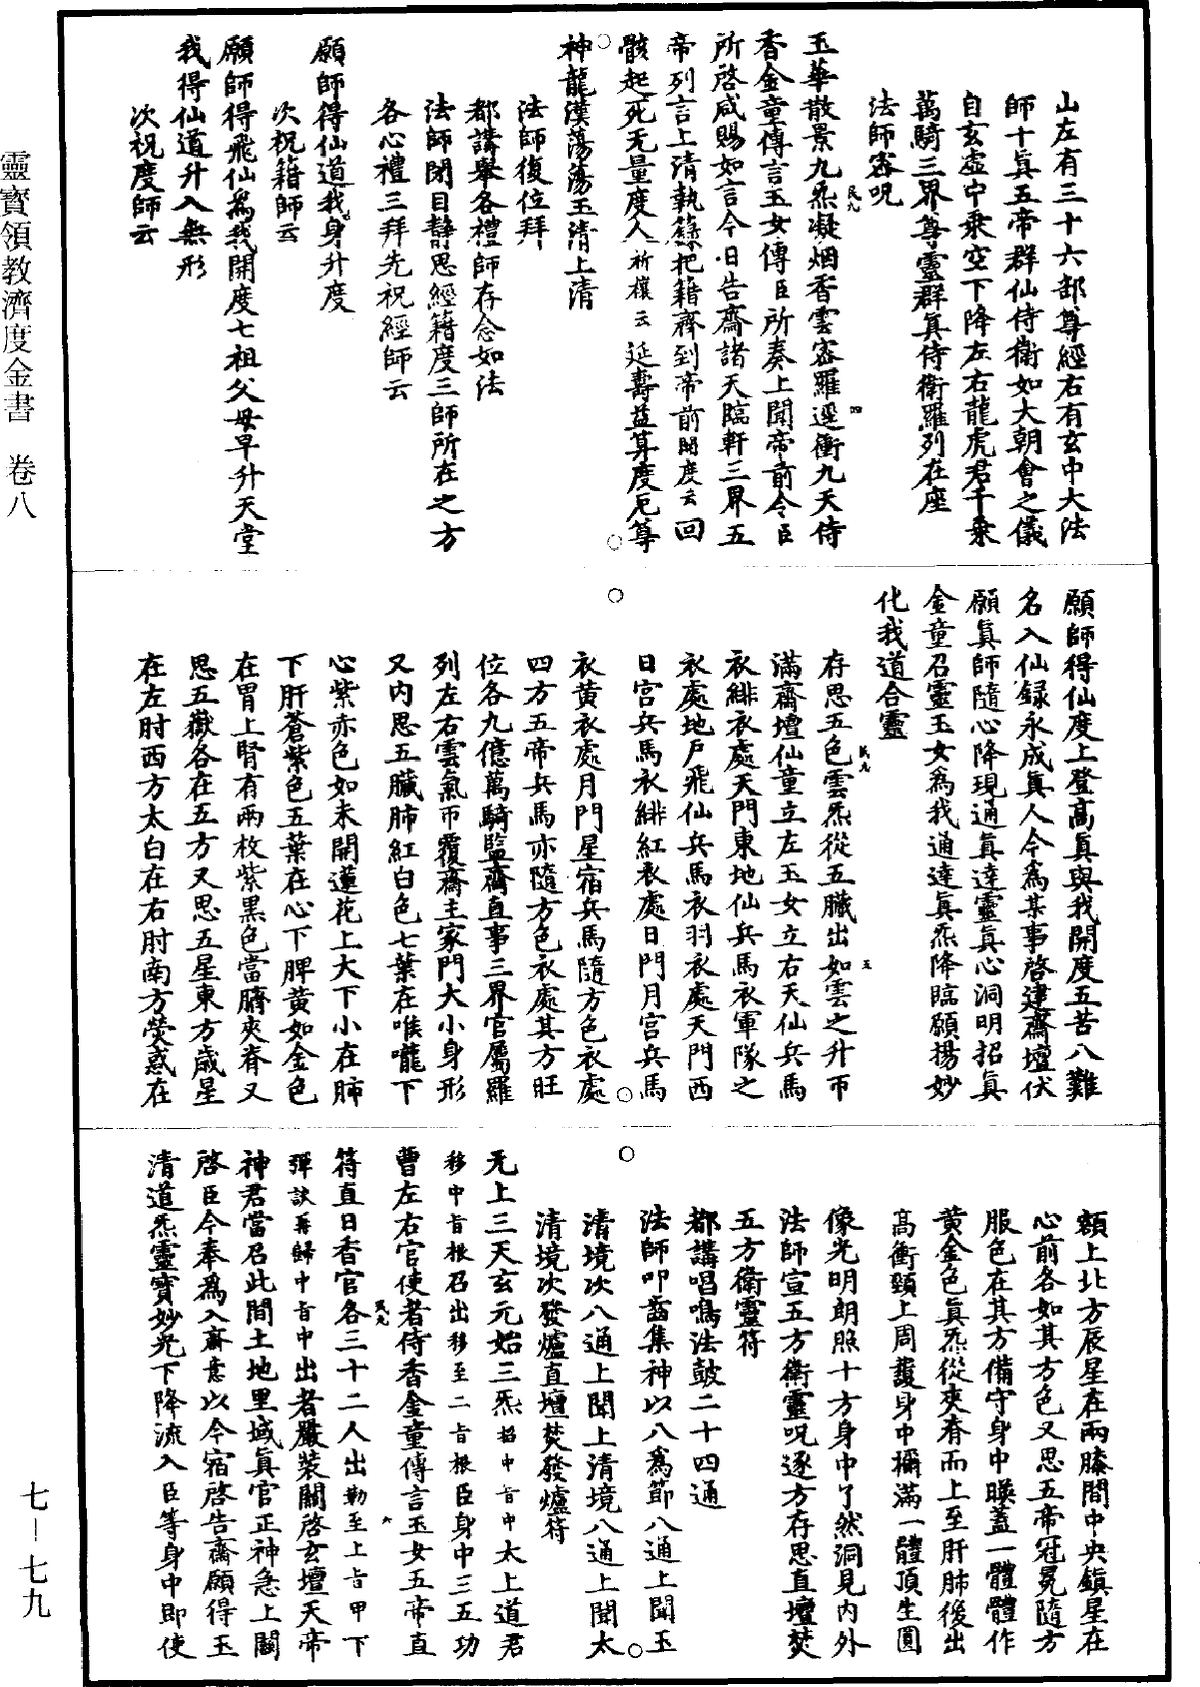 山左有三十六部尊經右有玄中大法
師十眞五帝群仙侍衛如大朝會之儀
自玄虛中乘空下降左右龍虎君千乘
萬騎三界尊靈群眞侍衛羅列在座
法師密呪
玉華散景九炁凝烟香雲密羅逕衝九天侍
香金童傳言玉女傳臣所奏上聞帝前令臣
所啓咸賜如言今日告齋諸天臨軒三界五
帝列言上清執籙把籍齊到帝前開度云回
骸起死无量度人祈禳云延壽益算度厄尊
神龍漢蕩蕩玉清上清
法師復位拜
都講舉各禮師存念如法
法師閉目靜思經籍度三師所在之方
各心禮三拜先祝經師云
願師得仙道我身升度
次祝籍師云
願師得飛仙爲我開度七祖父母早升天堂
我得仙道升入無形
次祝度師云
願師得仙度上登高眞與我開度五苦八難
名入仙録永成眞人今爲某事啓建齋壇伏
願眞師隨心降現通眞達靈眞心洞明招眞
金童召靈玉女爲我通達眞炁降臨願揚妙
化我道合靈
存思五色雲炁從五臟出如雲之升帀
滿齋壇仙童立左玉女立右天仙兵馬
衣緋衣處天門東地仙兵馬衣軍隊之
衣處地戶飛仙兵馬衣羽衣處天門西
日宮兵馬衣緋紅衣處日門月宮兵馬
衣黃衣處月門星宿兵馬隨方色衣處
四方五帝兵馬亦隨方色衣處其方旺
位各九億萬騎監齋直事三界官屬羅
列左右雲氣帀覆齋主家門大小身形
又内思五臟肺紅白色七葉在喉嚨下
心紫赤色如未開蓮花上大下小在肺
下肝蒼紫色五葉在心下脾黃如金色
在胃上腎有兩枚紫黑色當臍夾脊又
思五嶽各在五方又思五星東方歲星
在左肘西方太白在右肘南方熒惑在
額上北方辰星在兩膝間中央鎭星在
心前各如其方色又思五帝冠冕隨方
服色在其方備守身中暎蓋一體體作
黃金色眞炁從夾脊而上至肝肺後出
高衝頸上周䕶身中禰滿一體頂生圓
像光明朗照十方身中了然洞見内外
法師宣五方衛靈呪逐方存思直壇焚
五方衛靈符
都講唱鳴法鼓二十四通
法師叩齒集神以八爲節八通上聞玉
清境次八通上聞上清境八通上聞太
清境次發爐直壇焚發爐符
无上三天玄元始三炁招中㫖中太上道君
移中㫖根召出移至二㫖根臣身中三五功
曹左右官使者侍香金童傳言玉女五帝直
符直日香官各三十二人出勒至上㫖甲下
彈訣再歸中㫖中出者嚴裝關啓玄壇天帝
神君當召此間土地里域眞官正神急上關
啓臣今奉爲入齋意以今宿啓告齋願得玉
清道炁靈寶妙光下降流入臣等身中即使
民九
四
民九
五
民九
六
靈寶領教濟度金書 卷八
七－七九